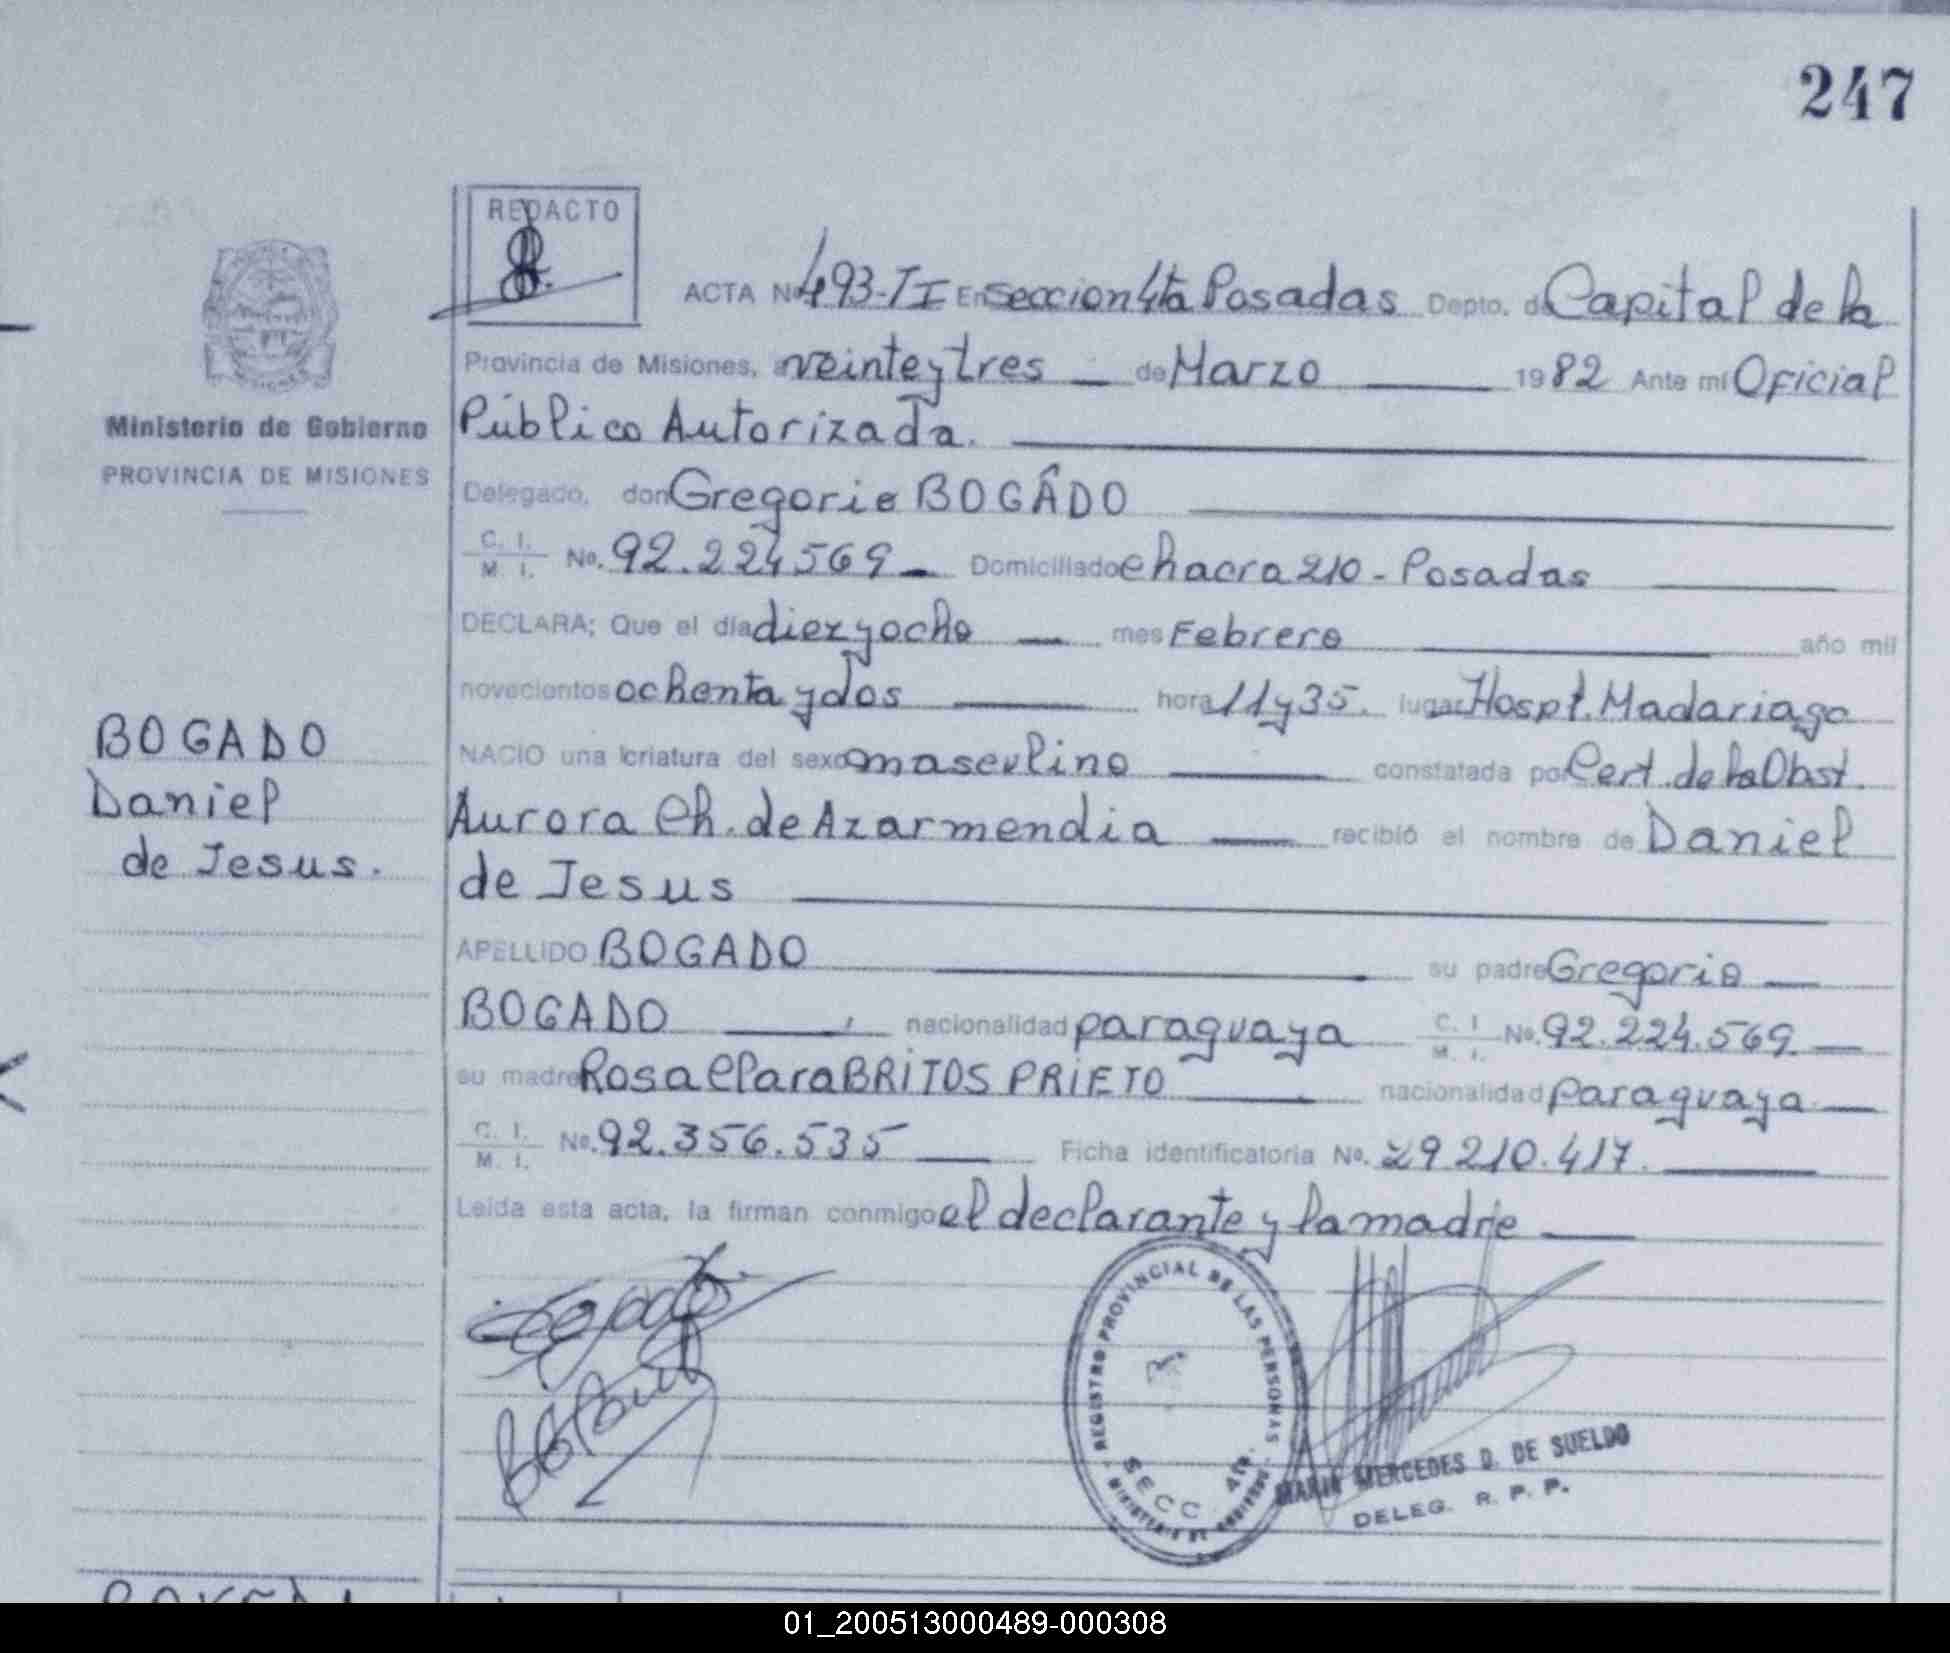 247
REDACTO
ACTA No 493-II En seccion 4ta Posadas Depto. de Capital de la
Provincia de Misiones, a veinte y tres de Marzo 1982 Ante mí Oficial
Público Autorizada.
Ministerio de Gobierno
PROVINCIA DE MISIONES
Delegado, don Gregorio BOGADO
C. I. M. I. No. 92.224569 Domiciliado chacra 210 - Posadas
DECLARA; Que el día diez y ocho mes Febrero año mil
novecientos ochenta y dos hora 11 y 35. lugar Hospt. Madariaga
BOGADO
Daniel
de Jesus.
NACIO una criatura del sexo masculino constatada por Cert. de la Obst.
Aurora Ch. de Azarmendia recibió el nombre de Daniel
de Jesus
APELLIDO BOGADO su padre Gregorio
BOGADO nacionalidad paraguaya C. I. M. I. No. 92.224.569.
su madre Rosa Clara BRITOS PRIETO nacionalidad paraguaya
C. I. M. I. No. 92.356.535 Ficha identificatoria No. 29210.417.
Leída esta acta, la firman conmigo el declarante y la madre
REGISTRO PROVINCIAL DE LAS PERSONAS
SECC. 4ta.
MINISTERIO DE GOBIERNO
MARIA MERCEDES D. DE SUELDO
DELEG. R. P. P.
01_200513000489-000308